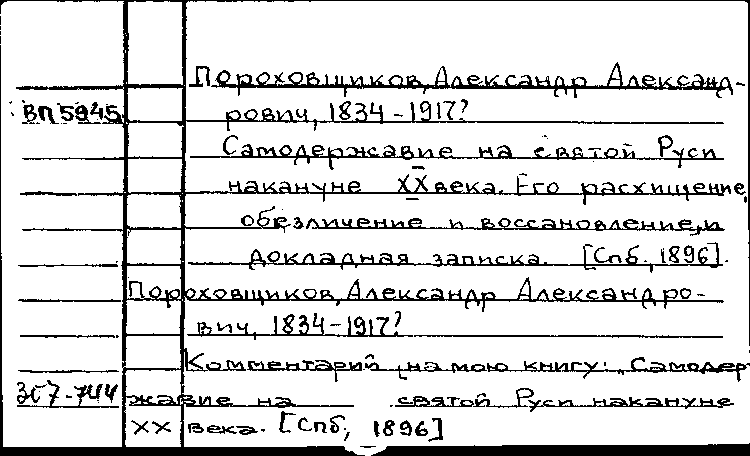 Пороховщиков, Александр Александ-
ВП 5945 рович, 1834-1917?
Самодержавие на святой Руси
накануне XX века. Его расхищение,
обезличение и воссановление, и
докладная записка. [Спб., 1896].
Пороховщиков, Александр Александро-
вич, 1834-1917?
Комментарий на мою книгу: Самодер
жавие на святой Руси накануне
XX века. [Спб., 1896]